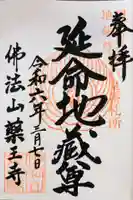 奉拝
延命地蔵尊
令和六年三月七日
佛法山薬王寺